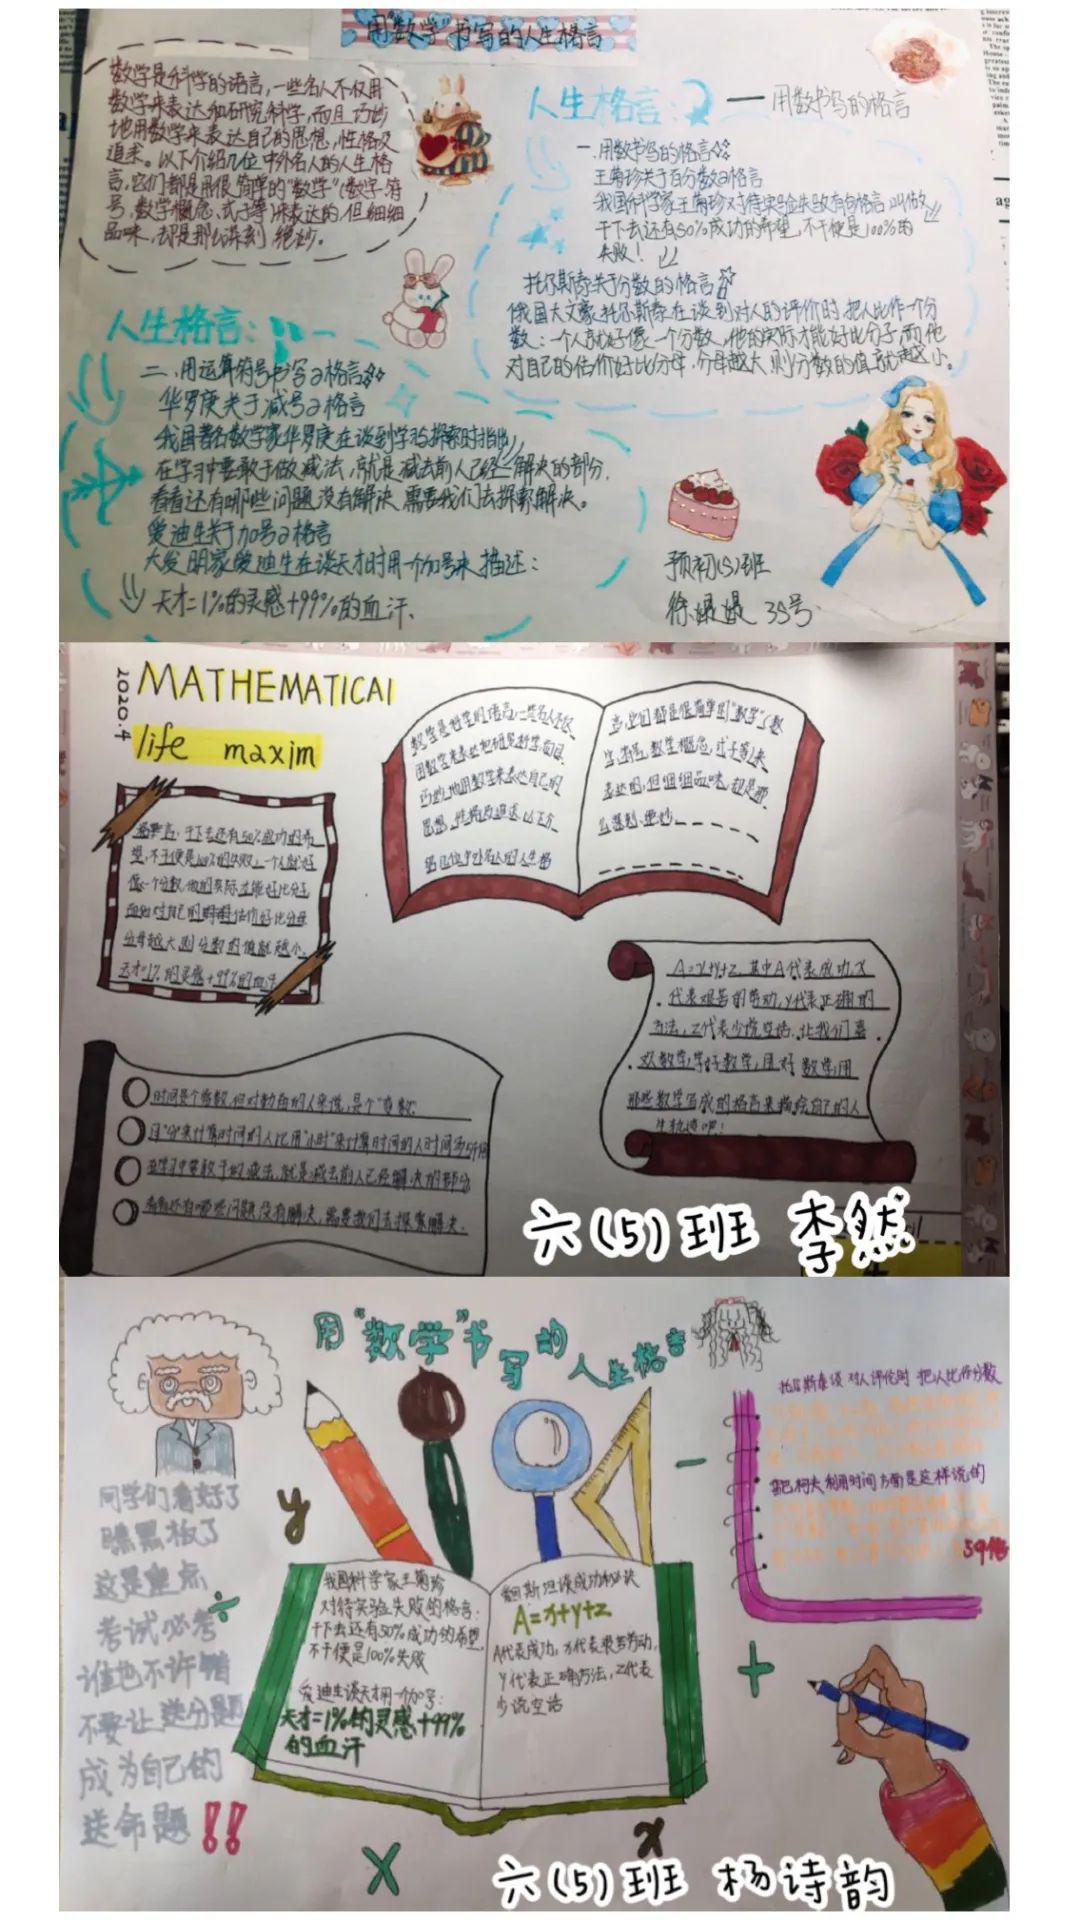 用“数学”书写的人生格言
数学是科学的语言,一些名人不仅用
数学来表达和研究科学,而且巧妙
地用数学来表达自己的思想,性格及
追求。以下介绍几位中外名人的人生格
言,它们都是用很简单的“数学”(数字、符
号,数学概念、式子等)来表达的,但细细
品味,却是那么深刻、绝妙。
人生格言:
用数书写的格言
一.用数书写的格言
王菊珍关于百分数的格言
我国科学家王菊珍对待实验失败有句格言,叫做
干下去还有50%成功的希望,不干便是100%的
失败!
托尔斯泰关于分数的格言
俄国大文豪托尔斯泰在谈到对人的评价时,把人比作一个分
数:一个人就好像一个分数,他的实际才能好比分子,而他
对自己的估价好比分母,分母越大,则分数的值就越小。
人生格言:
二.用运算符号书写的格言
华罗庚关于减号的格言
我国著名数学家华罗庚在谈到学习与探索时指出
在学习中要敢于做减法,就是减去前人已经解决的部分,
看看还有哪些问题没有解决,需要我们去探索解决。
爱迪生关于加号的格言
大发明家爱迪生在谈天才时用一个加号来描述:
天才=1%的灵感+99%的血汗.
预初(5)班
徐 35号
2020.4
MATHEMATICAl
life maxim
干下去还有50%成功的希
望,不干便是100%的失败,一个人就好
像一个分数,他的实际才能好比分子
而他对自己的估价好比分母
分母越大则分数的值就越小。
天才=1%的灵感+99%的血汗
数学是科学的语言,一些名人不仅
用数学来表达和研究科学,而且
巧妙地用数学来表达自己的
思想,性格及追求,以下介
绍几位中外名人的人生格
言,它们都是很简单的“数学”(数
字,符号,数学概念,式子等)来
表达的,但细细品味,却是那
么深刻、绝妙
A=x+y+z,其中A代表成功,X
代表艰苦的劳动,y代表正确的
方法,Z代表少说空话.让我们喜
欢数学,学好数学,用好数学,用
那些数学写成的格言来描绘自己的人
生轨迹吧!
时间是个常数,但对勤奋的人来说,是个“变数”
用“分”来计算时间的人比用“小时”来计算时间的人时间多59倍
在学习中要敢于做减法,就是减去前人已经解决的部分
看看还有哪些问题没有解决,需要我们去探索解决.
六(5)班 李然
用“数学”书写的人生格言
托尔斯泰谈对人评价时 把人比作分数
雷巴柯夫利用时间方面是这样说的
59倍
同学们看过了
瞟黑板了
这是重点
考试必考
谁也不许错
不要让送分题
成为自己的
送命题!!
y
÷
-
+
我国科学家王菊珍
对待实验失败的格言:
干下去还有50%成功的希望,
不干便是100%失败
爱迪生谈天才用一个加号:
天才=1%的灵感+99%
的血汗
爱因斯坦谈成功秘诀
A=x+y+z
A代表成功,x代表艰苦劳动,
y代表正确方法,z代表
少说空话
X
x
六(5)班 杨诗韵